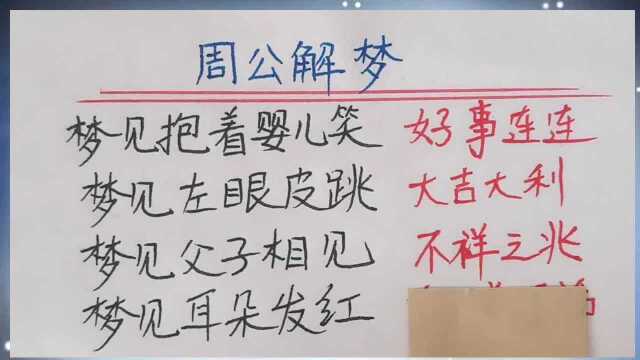 周公解梦
梦见抱着婴儿笑 好事连连
梦见左眼皮跳 大吉大利
梦见父子相见 不祥之兆
梦见耳朵发红